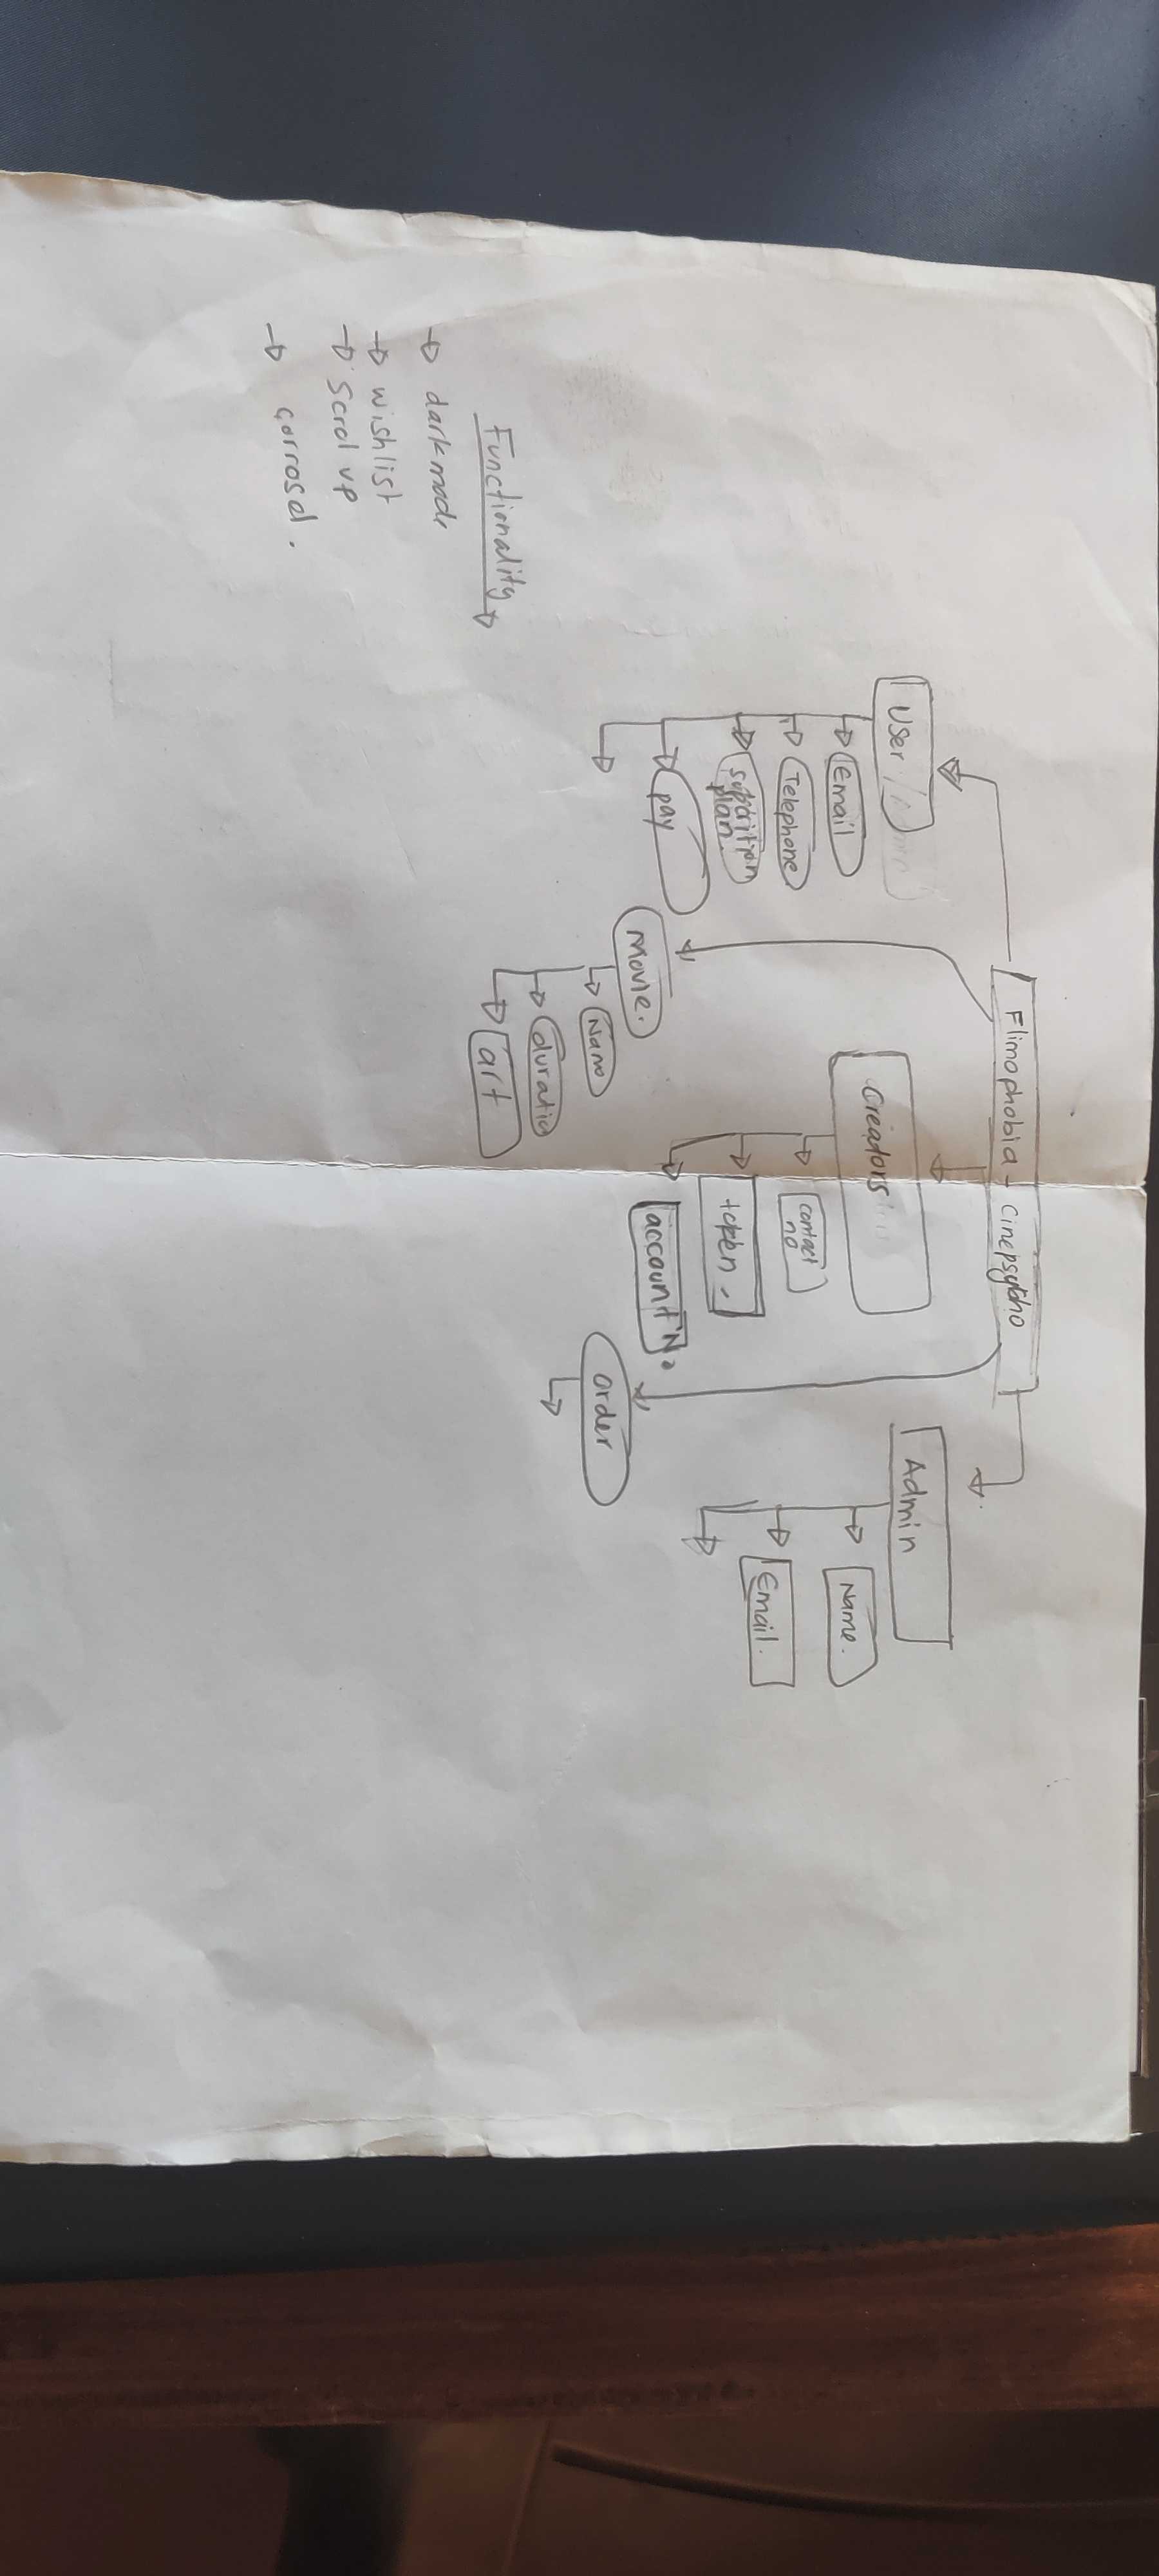 Flimophobia - Cinepsycho
User
Email
Telephone
plan
pay
Movie.
Name
duratio
art
Creadors
contact
no
token.
account No
order
Admin
Name.
Email.
Functionality
dark mode
wishlist
Scrol up
carrosel.